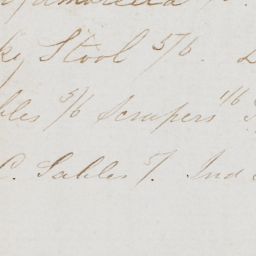 ky Stool 5/6.
bles 5/6 Scrapers 1/6
C. Tables 5/. Ind